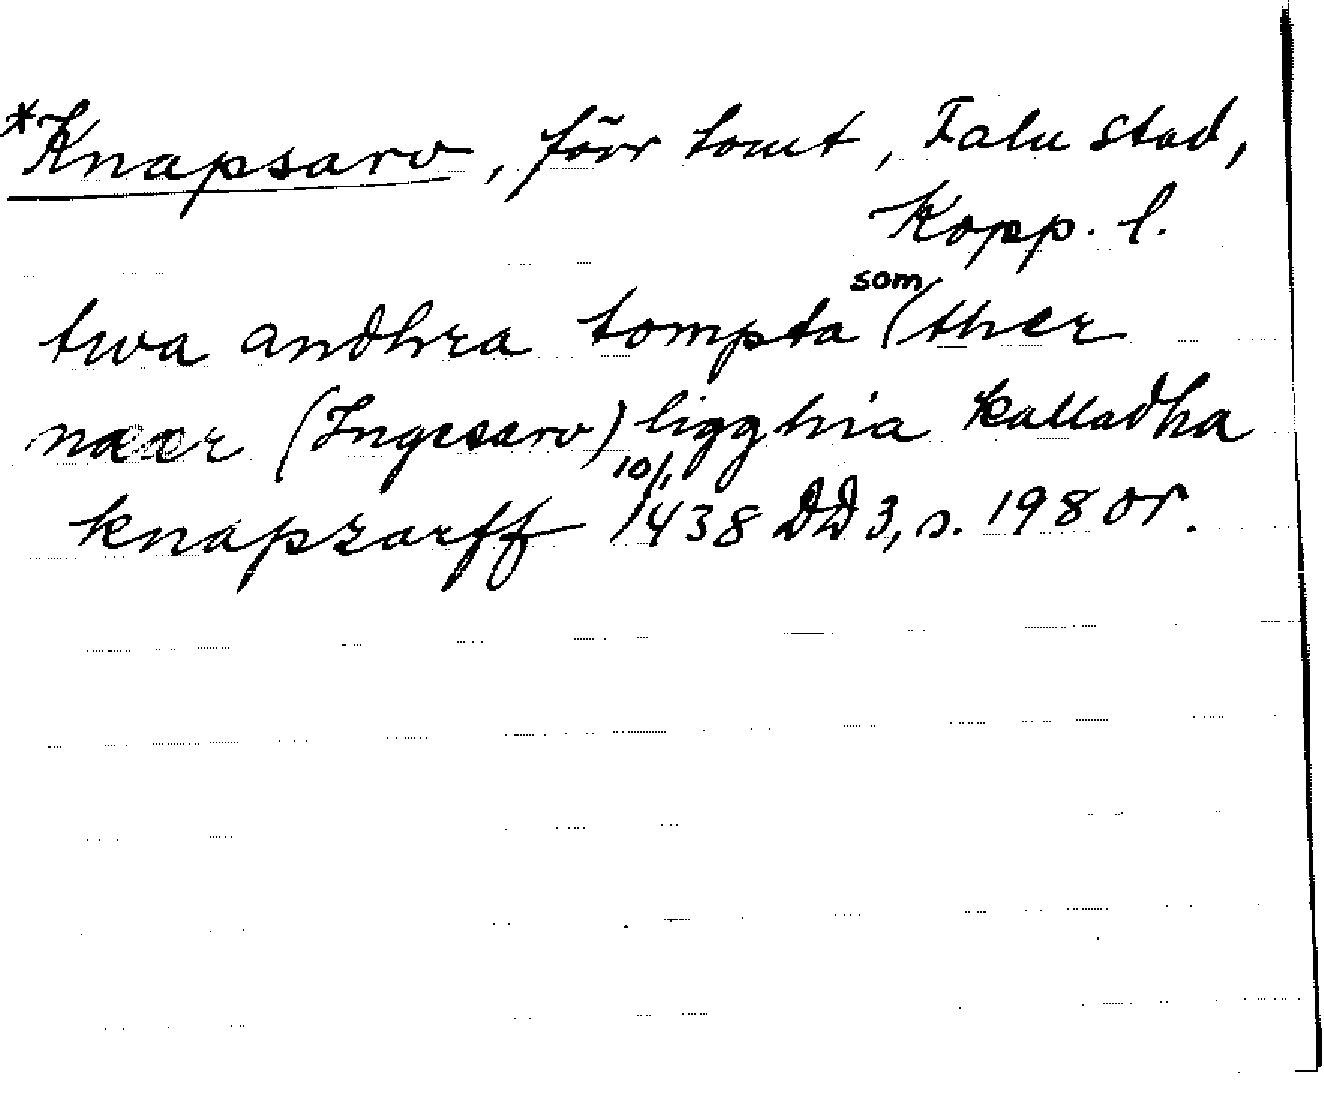 *Knapsarv, förr tomt, Falu stad,
Kopp. l.
twa andhra tompta som (ther
nææer (Ingesarv) ligghia kalladha
knapzarff 10/1 1438 DD 3, s. 198 or.